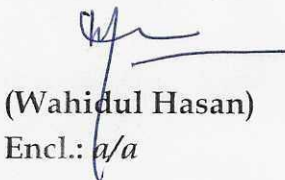 (Wahidul Hasan)
Encl.: a/a